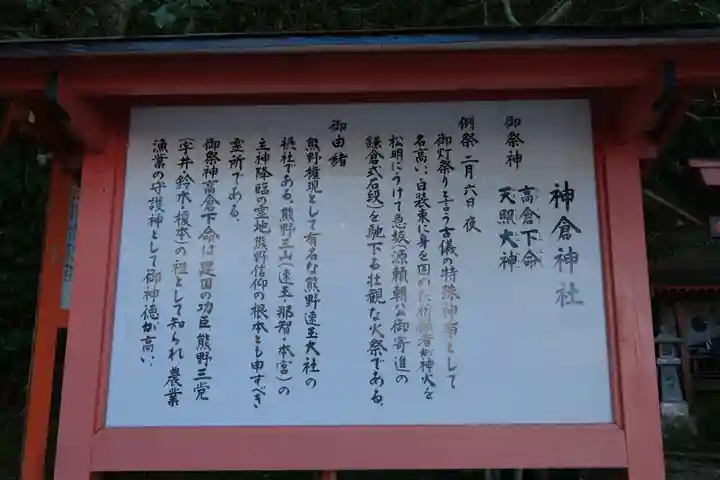 神倉神社
御祭神
高倉下命
天照大神
例祭 二月六日夜
御灯祭りと言う古儀の特殊神事として
名高い、白装束に身を固めた祈願者が神火を
松明にうけて急坂(源頼朝公御寄進の
鎌倉式石段)を馳下る壮観な火祭である。
御由緒
熊野権現として有名な熊野速玉大社の
摂社である。熊野三山(速玉・那智・本宮)の
主神降臨の霊地熊野信仰の根本とも申すべき
霊所である。
御祭神高倉下命は建国の功臣熊野三党
(宇井・鈴木・榎本)の祖として知られ、農業
漁業の守護神として御神徳が高い。